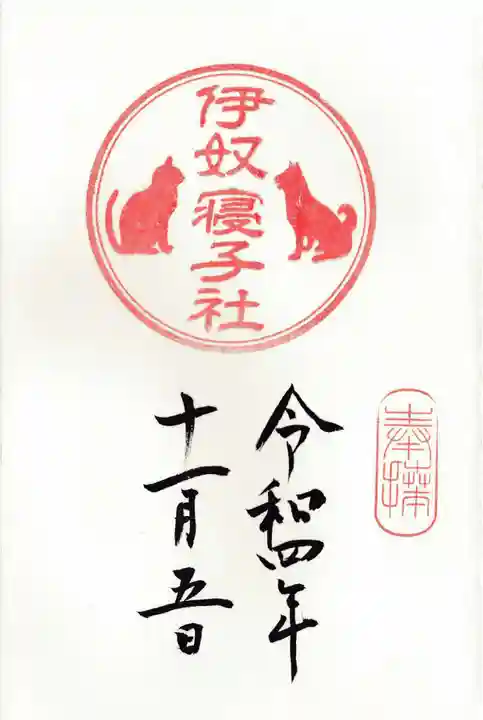 伊奴寝子社
奉拝
令和四年
十一月五日